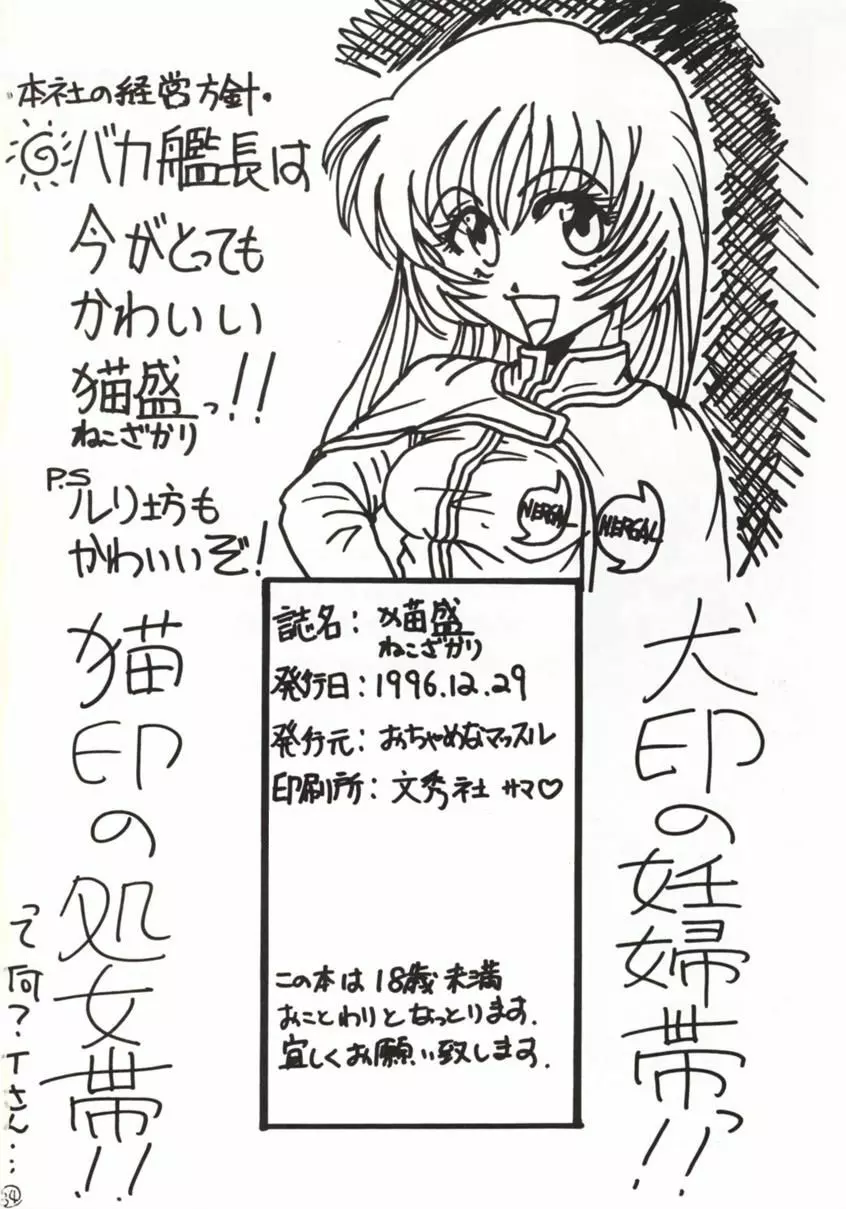 本社の経営方針.
バカ艦長は
今がとっても
かわいい
猫盛っ!!
ねこざかり
P.S
ルリ坊も
かわいいぞ!
NERGAL
NERGAL
誌名：猫盛
ねこざかり
発行日：1996.12.29
発行元：おっちゃめなマッスル
印刷所：文秀社 サマ♡
この本は18歳未満
おことわりとなっとります.
宜しくお願い致します.
犬印の妊婦帯っ!!
猫印の処女帯!!
って何?Tさん…
34